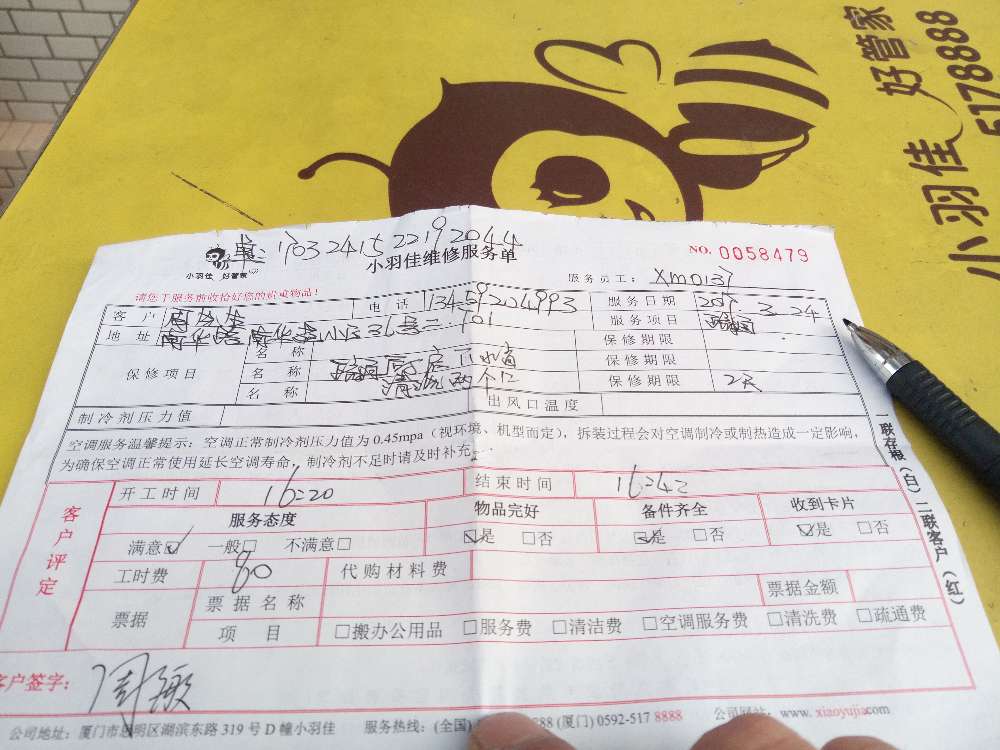 好管家
小羽佳 5178888
单: 1703241522192044
小羽佳 好管家
小羽佳维修服务单
NO. 0058479
服务员工: Xm0137
请您于服务前收拾好您的贵重物品!
客 户 电 话 13459204993 服务日期 2017 3.24
地 址 服务项目
保修项目 名 称 保修期限
名 称 保修期限
名 称 清洗两个口 保修期限 2天
制冷剂压力值 出风口温度
空调服务温馨提示:空调正常制冷剂压力值为 0.45mpa(视环境、机型而定),拆装过程会对空调制冷或制热造成一定影响,
为确保空调正常使用延长空调寿命,制冷剂不足时请及时补充。
客户评定
开工时间 16:20 结束时间 16:42
服务态度 物品完好 备件齐全 收到卡片
满意☑ 一般□ 不满意□ ☑是 □否 ☑是 □否 ☑是 □否
工时费 80 代购材料费
票据 票据名称 票据金额
项 目 □搬办公用品 □服务费 □清洁费 □空调服务费 □清洗费 □疏通费
客户签字:
公司地址:厦门市思明区湖滨东路 319 号 D 幢小羽佳 服务热线:(全国) 888 (厦门) 0592-517 8888 公司网站:www.xiaoyujia.com
一联存根(白)二联客户(红)